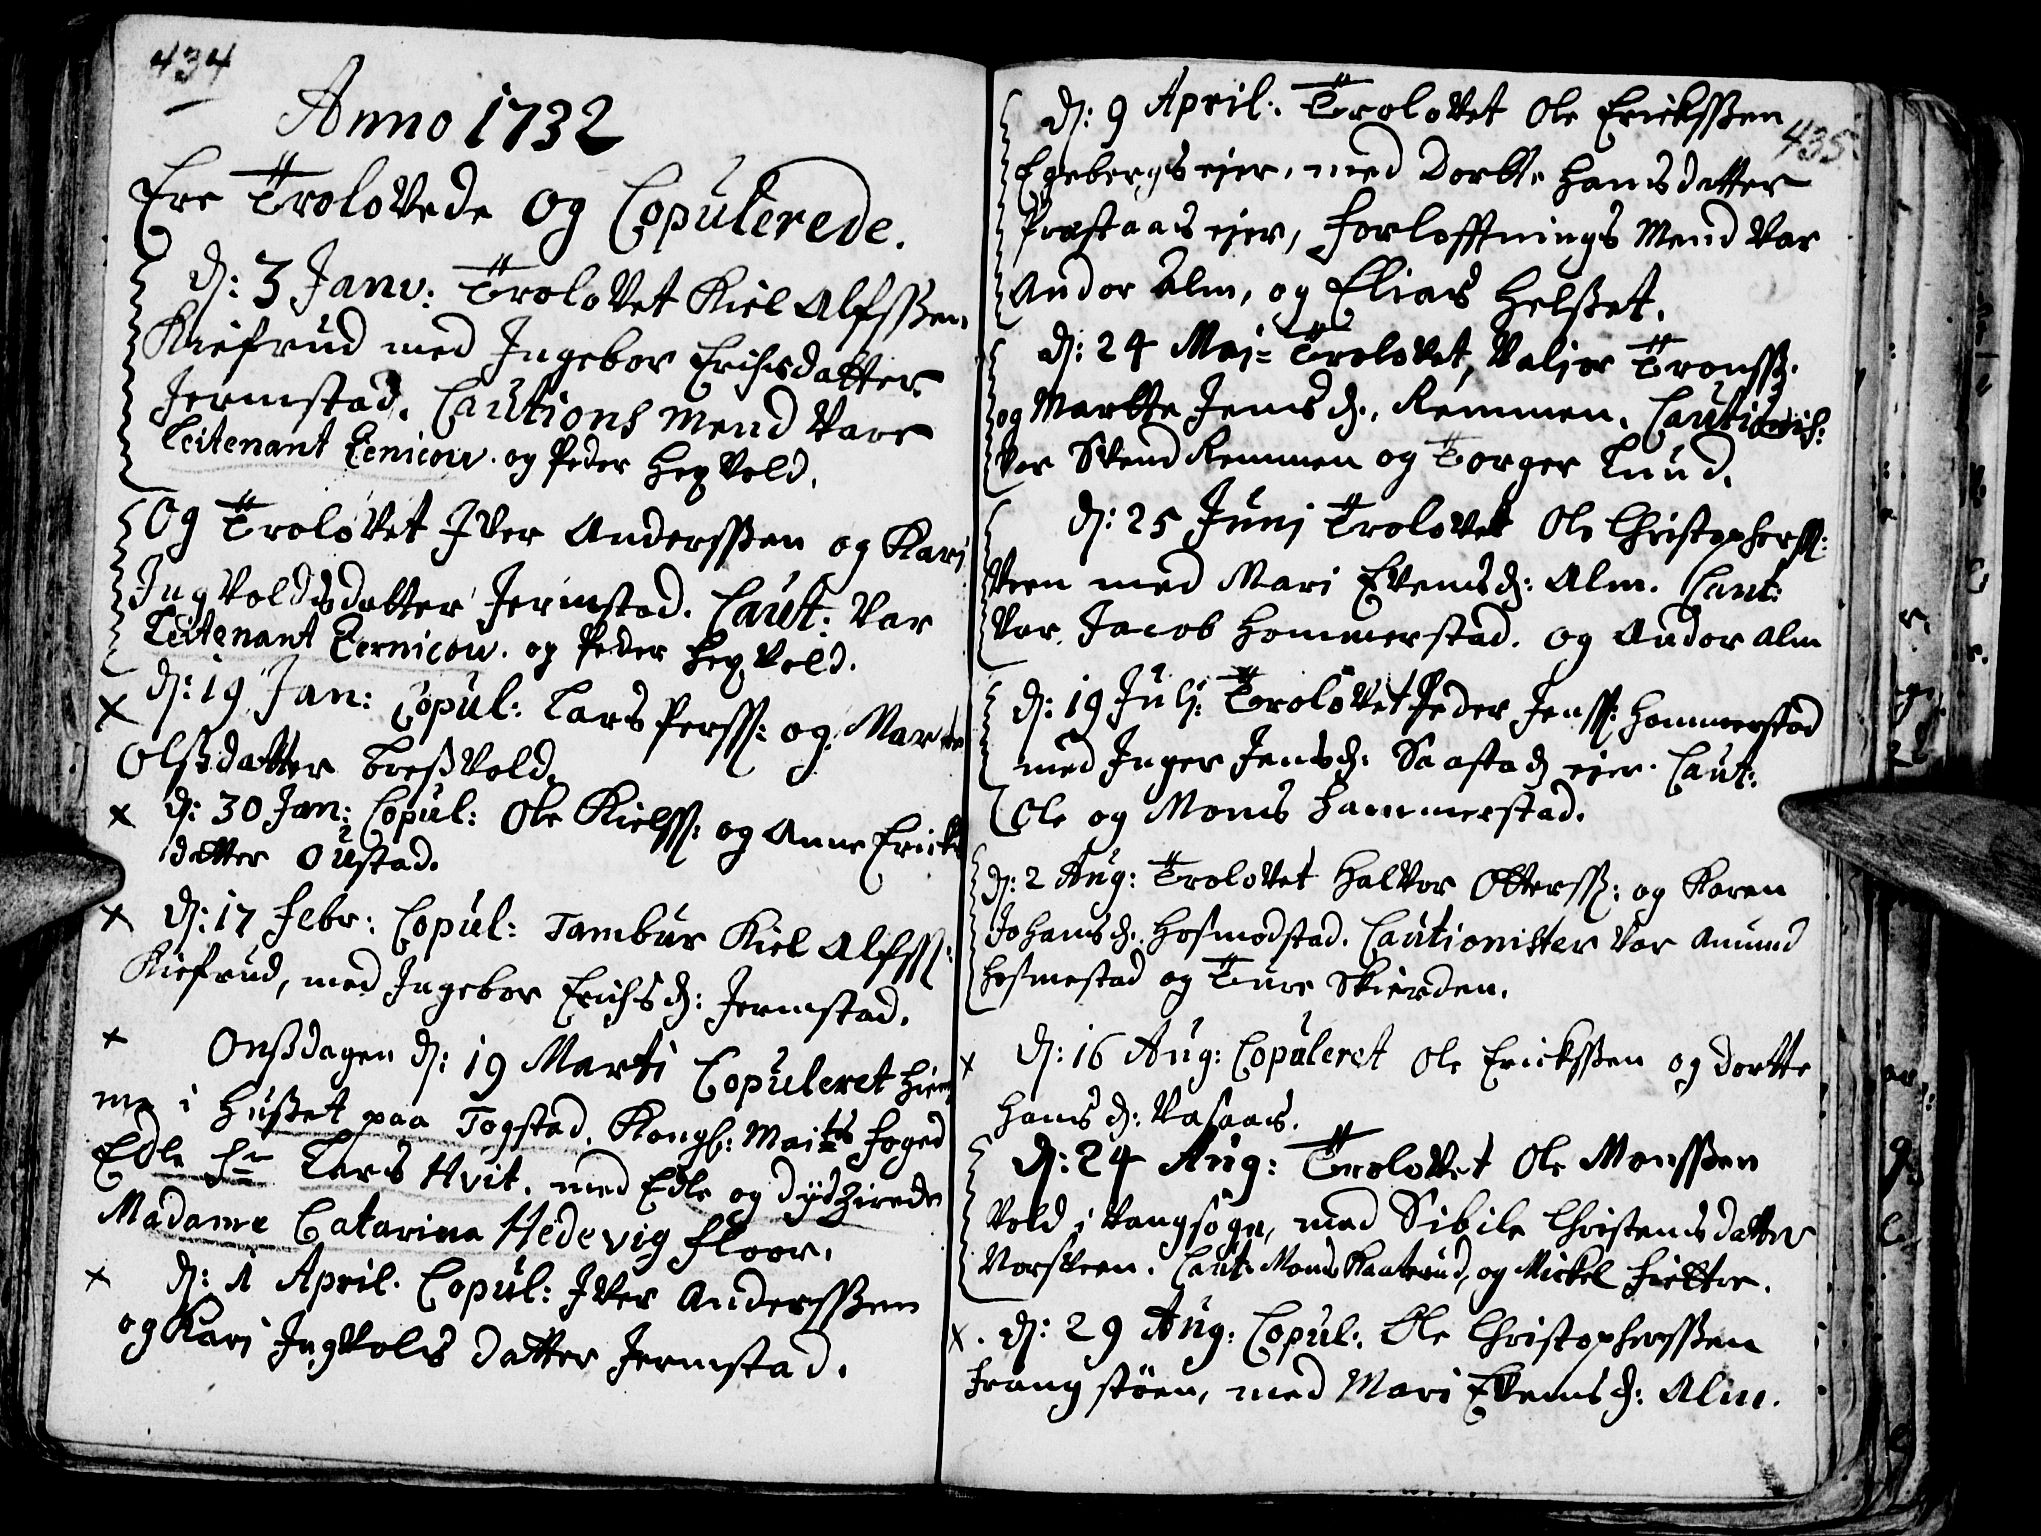 434
Anno 1732
Ere Trolovede og Copulerede.
d: 3 Janv: Trolovet Kiel Alfsßen
Kiefrud med Ingebor Erichsdatter
Jermstad. Cautions mend vare
Leitenant Lenicow. og Peder Hexvold.
Og Trolovet Iver Andersßen og Kari
Ingvoldsdatter Jermstad. Caut: var
Leitenant Lernicow. og Peder Hexvold.
d: 19 Jan: Copul: Lars Perss: og Marte
Olsdatter
d: 30 Jan: Copul: Ole Kielss: og Anne Ericks
datter Oustad.
d: 17 Febr: Copul: Tambur Kiel Alfss:
Kiefrud, med Ingebor Erichsd: Jermstad.
Onßdagen d: 19 Marti Copuleret hiem
me i Hußet paa Togstad. Kongl: Maits foged
Edle Hr Lars Hvit. med Edle og dydzirede
Madame Catarina Hedevig Floor.
d: 1 April. Copul: Iver Andersßen
og Kari Ingvolds datter Jermstad.
435.
d: 9 April. Trolovet Ole Ericksßen
Egebergs ejer, med Dortte Hansdatter
Prestaas ejer, Forlofftnings Mend var
Andor Alm, og Elias Helßet.
d: 24 Maj= Trolovet, Valjor Tronsß.
og Martte Jensd. Remmen.
var Svend Remmen og Torger Luud.
d: 25 Junj Trolovet Ole Christopherss:
Veen med Mari Evensd: Alm. Caut:
var. Jacob Hommerstad. og Andor Alm
d: 19 Julj: Trolovet Peder Jenss: Hommerstad
med Inger Jensd: Saastad ejer. Caut:
Ole og Mons Hammerstad.
d: 2 Aug: Trolovet Halvor Ottersß: og Karen
Johansd. Hosmodstad. Cautionister var Amund
Hosmestad og Ture Skierden.
d: 16 Aug: Copuleret Ole Ericksßen og Dortte
Hans d: Vasaas.
d: 24 Aug: Trolovet Ole Monsßen
Vold i Vangsogn, med Sibile Christensdatter
Norsveen. Caut: Mons Kaatrud, og Mickel Fietter.
d: 29 Aug: Copul: Ole Christophersßen
Frangstöen, med Mari Evensd: Alm.